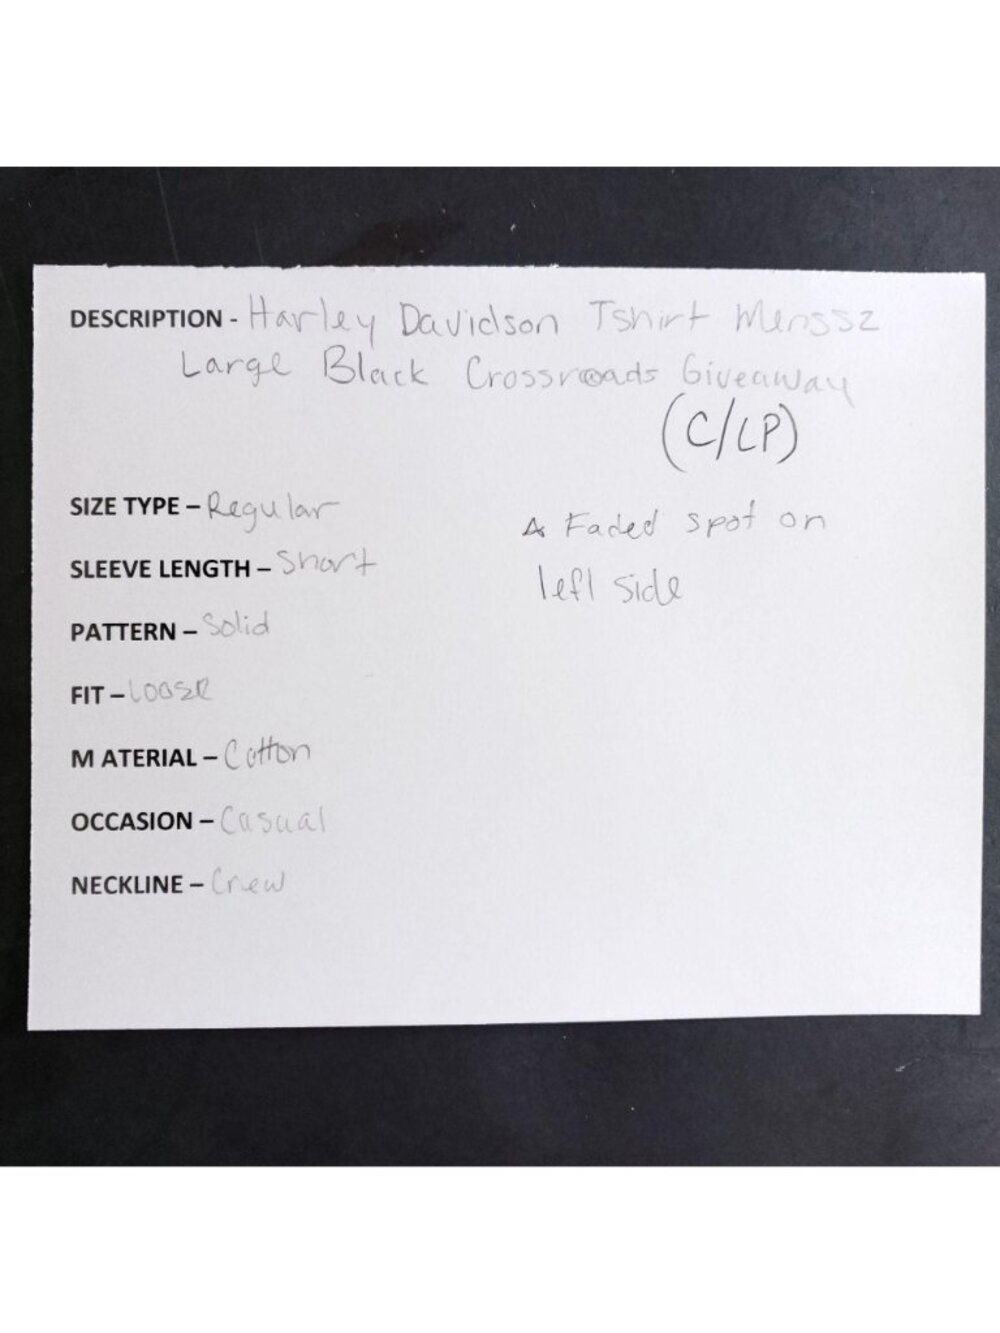 DESCRIPTION - Harley Davidson Tshirt Menssz
Large Black Crossroads Giveaway
(C/LP)
SIZE TYPE – Regular
A Faded spot on
left side
SLEEVE LENGTH – Short
PATTERN – Solid
FIT – Loose
M ATERIAL – Cotton
OCCASION – Casual
NECKLINE – Crew